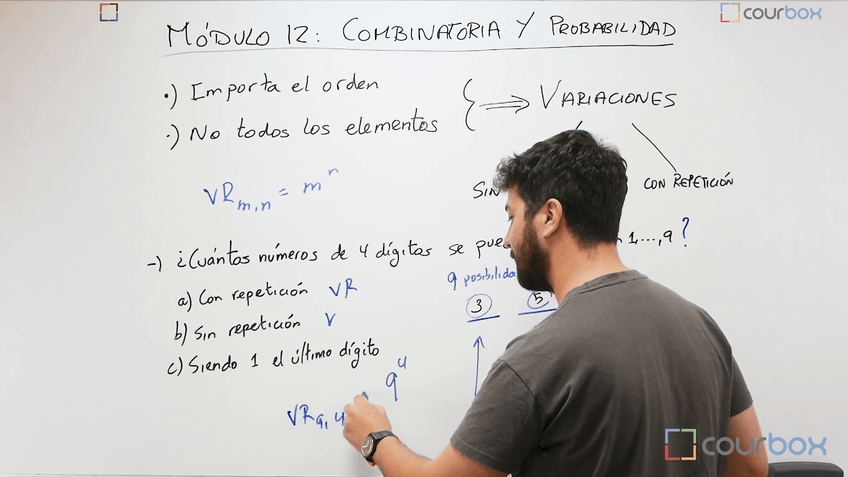 courbox
MÓDULO 12: COMBINATORIA Y PROBABILIDAD
·) Importa el orden
·) No todos los elementos
VARIACIONES
SIN
CON REPETICIÓN
VR m,n = m^n
-) ¿Cuántos números de 4 dígitos se 1,...,9 ?
9
a) Con repetición VR
b) Sin repetición V
c) Siendo 1 el último dígito
3 5
9^4
VR 9,4
courbox